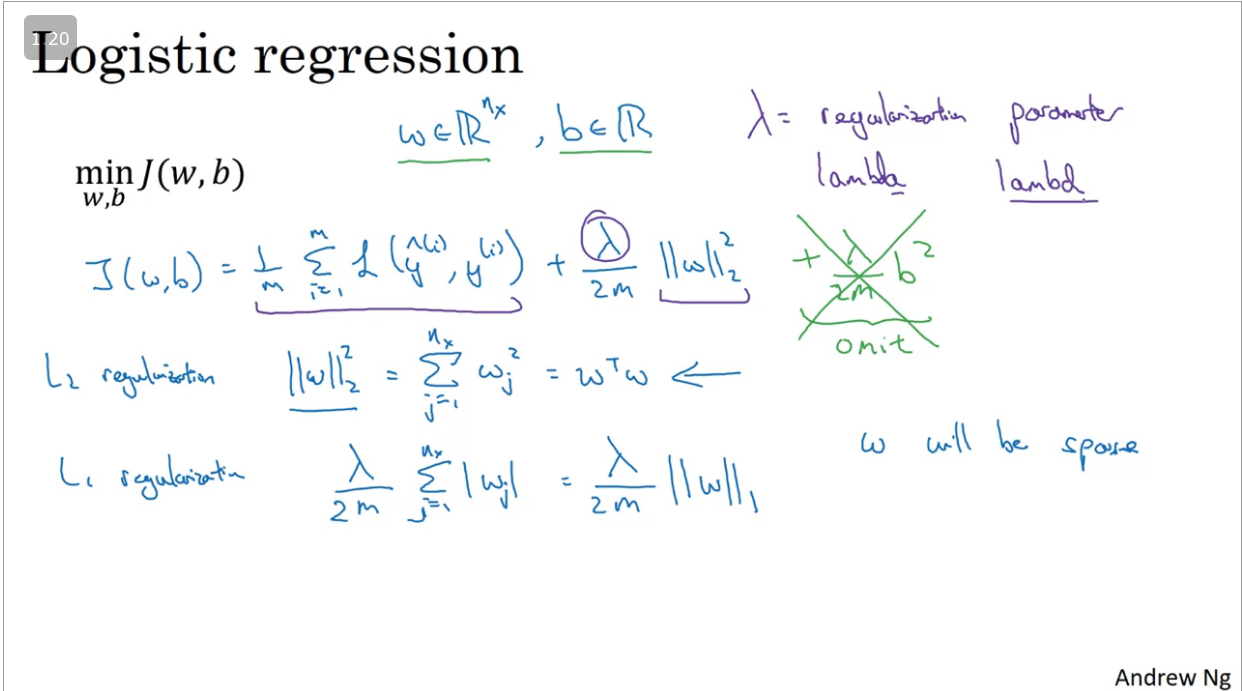 1.20
Logistic regression
w ∈ ℝ^{n_x}, b ∈ ℝ
λ = regularization parameter
lambda lambd
min_{w,b} J(w, b)
J(w,b) = 1/m Σ_{i=1}^{m} L(ŷ^{(i)}, y^{(i)}) + λ/2m ||w||_2^2 + λ/2m b^2
omit
L_2 regularization ||w||_2^2 = Σ_{j=1}^{n_x} w_j^2 = w^T w ←
w will be sparse
L_1 regularization λ/2m Σ_{j=1}^{n_x} |w_j| = λ/2m ||w||_1
Andrew Ng